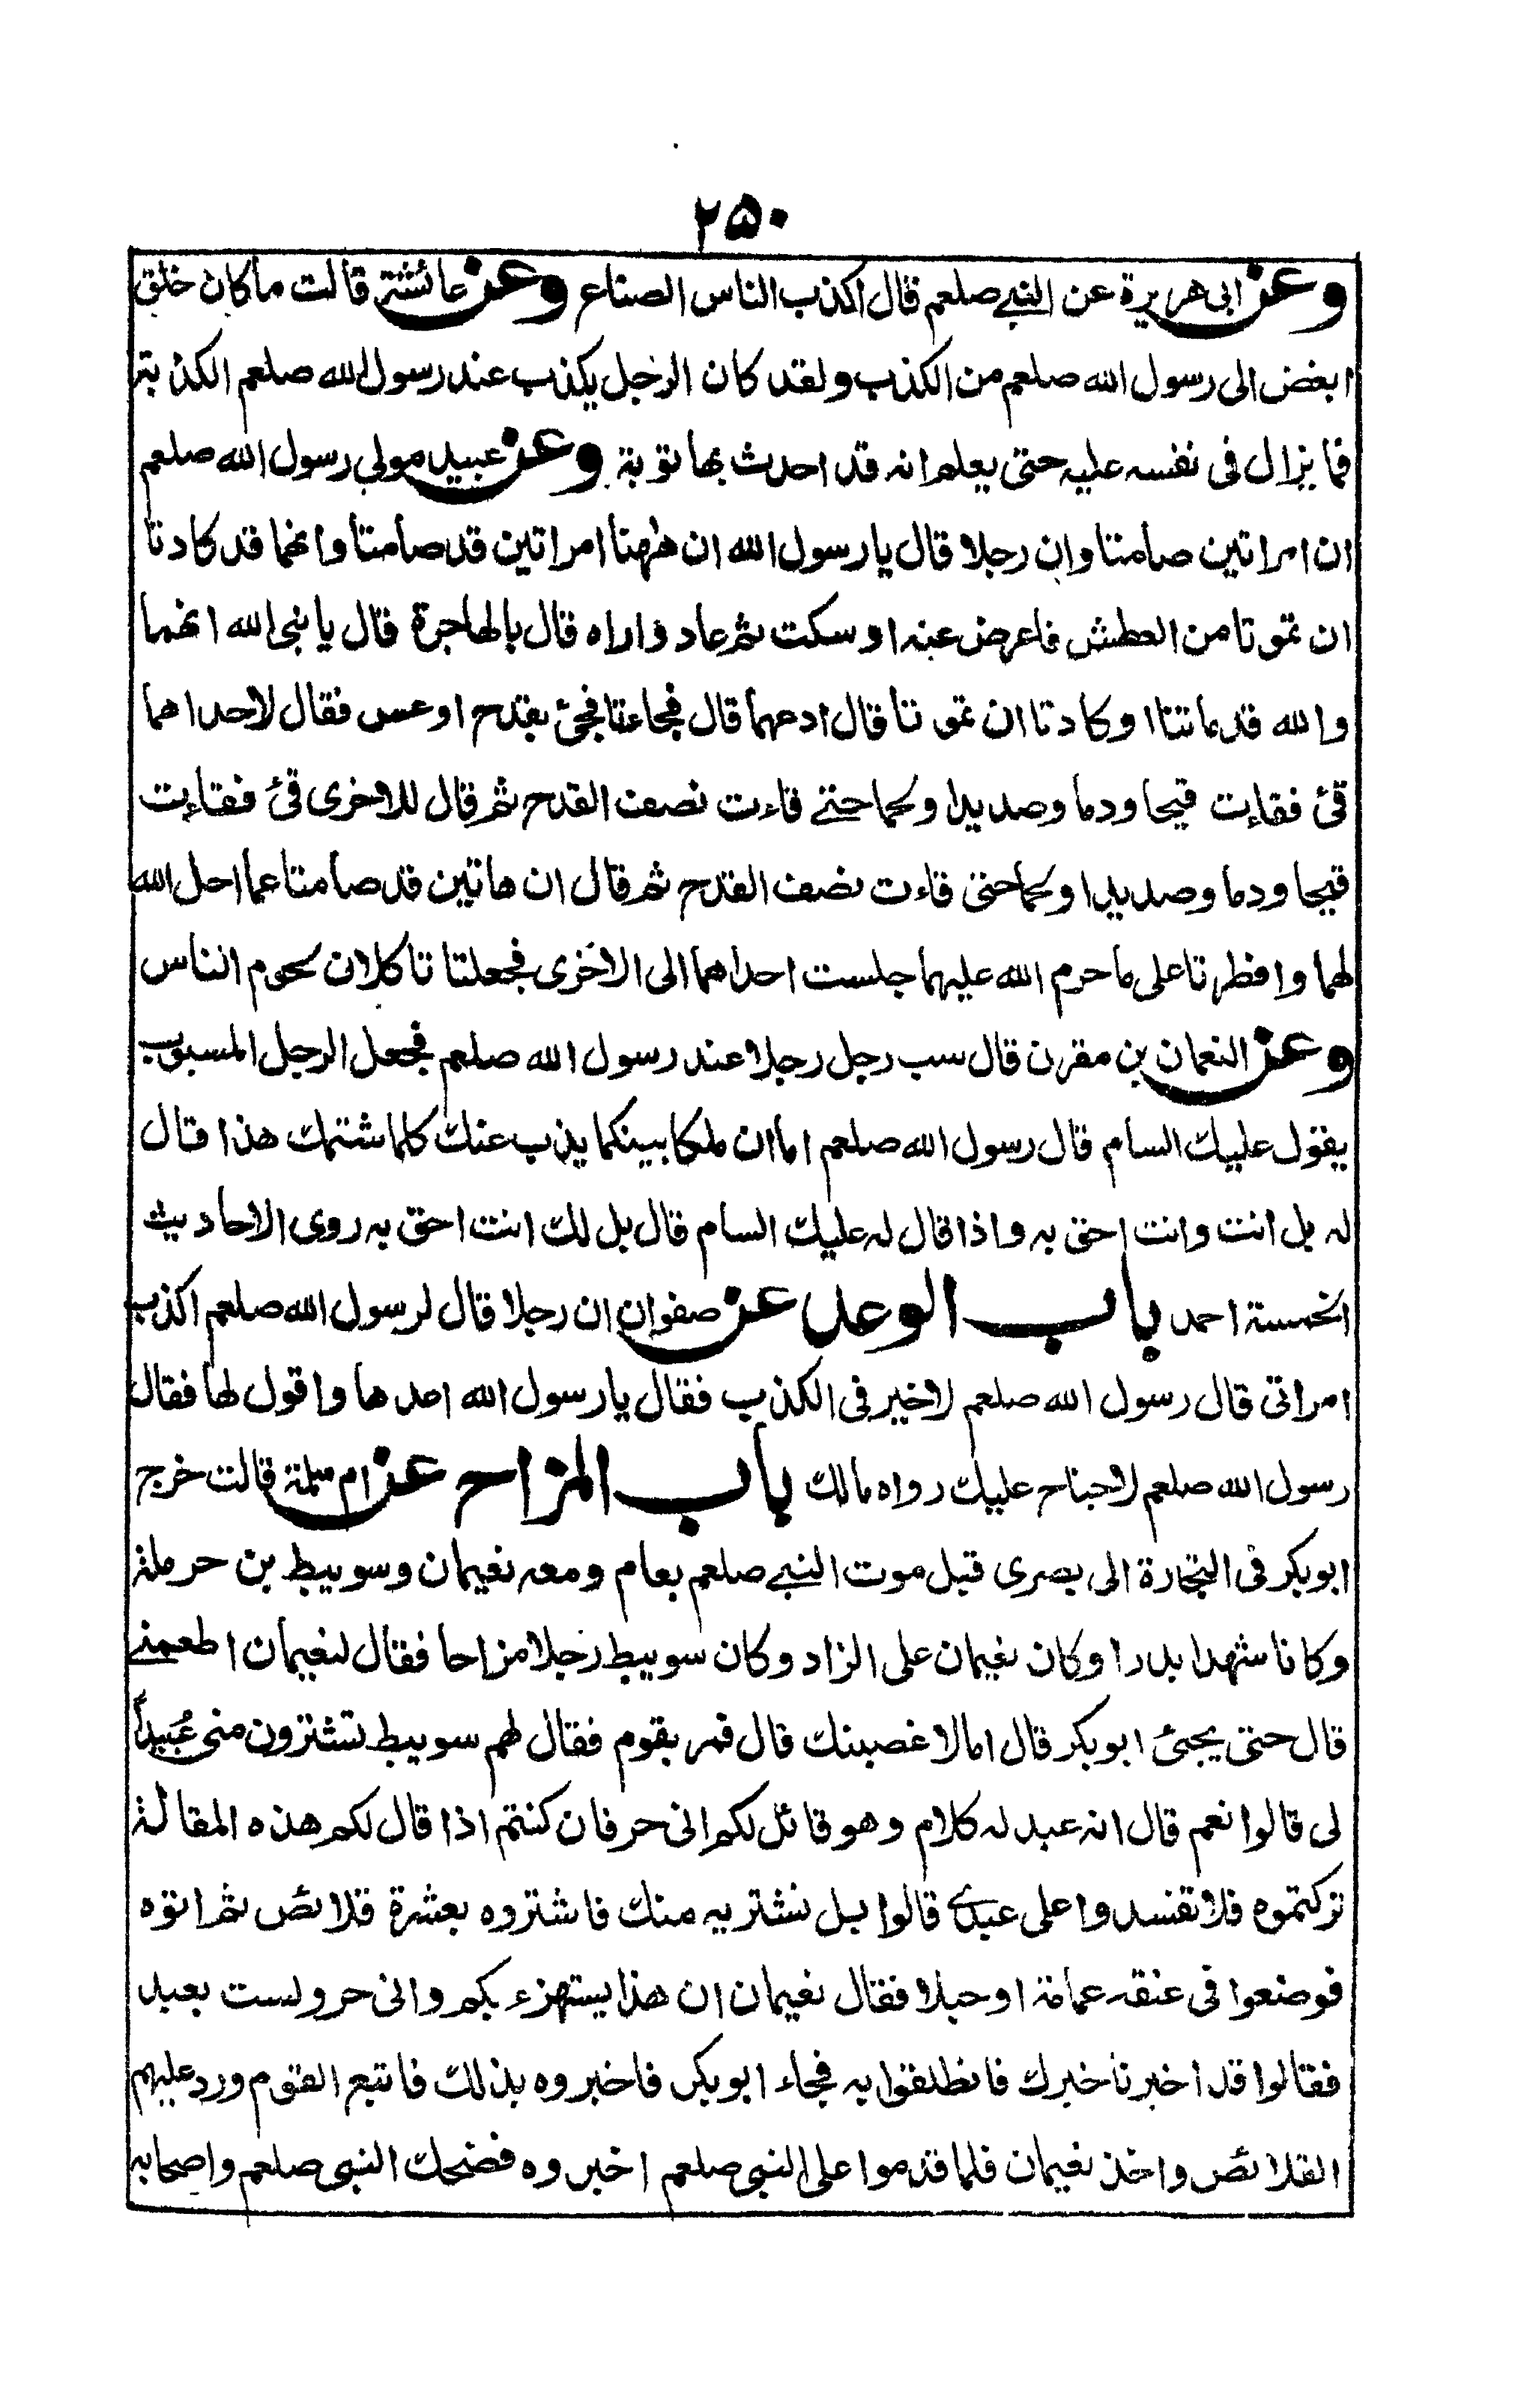 ۲۵۰
وعن ابی هریرة عن النبی صلعم قال اکذب الناس الصناع وعن عائشة قالت ما کان خلق
ابغض الی رسول الله صلعم من الکذب ولقد کان الرجل یکذب عند رسول الله صلعم الکذبة
فما یزال فی نفسه علیه حتی یعلم انه قد احدث بها توبة وعن عبید مولی رسول الله صلعم
ان امراتین صامتا وان رجلا قال یا رسول الله ان ههنا امراتین قد صامتا وانهما قد کادتا
ان تموتا من العطش فاعرض عنه او سکت ثم عاد واراه قال بالهاجرة قال یا نبی الله انهما
والله قد ماتتا او کادتا ان تموتا قال ادعهما قال فجاءتا فجئ بقدح او عس فقال لاحداهما
قئ فقاءت قیحا ودما وصدیدا ولحما حتی قاءت نصف القدح ثم قال للاخری قئ فقاءت
قیحا ودما وصدیدا ولحما حتی قاءت نصف القدح ثم قال ان هاتین قد صامتا عما احل الله
لهما وافطرتا علی ما حرم الله علیهما جلست احداهما الی الاخری فجعلتا تاکلان لحوم الناس
وعن النعمان بن مقرن قال سب رجل رجلا عند رسول الله صلعم فجعل الرجل المسبوب
یقول علیک السام قال رسول الله صلعم اما ان ملکا بینکما یذب عنک کلما شتمک هذا قال
له بل انت وانت احق به واذا قال له علیک السام قال بل لک انت احق به روی الاحادیث
الخمسة احمد باب الوعد عن صفوان ان رجلا قال لرسول الله صلعم اکذب
امراتی قال رسول الله صلعم لا خیر فی الکذب فقال یا رسول الله اعدها واقول لها فقال
رسول الله صلعم لا جناح علیک رواه مالک باب المزاح عن ام سلمة قالت خرج
ابوبکر فی التجارة الی بصری قبل موت النبی صلعم بعام ومعه نعیمان وسویبط بن حرملة
وکانا شهدا بدرا وکان نعیمان علی الزاد وکان سویبط رجلا مزاحا فقال لنعیمان اطعمنی
قال حتی یجیئ ابوبکر قال اما لاغضبنک قال فمر بقوم فقال لهم سویبط تشترون منی عُبیداً
لی قالوا نعم قال انه عبد له کلام وهو قائل لکم انی حر فان کنتم اذا قال لکم هذه المقالة
ترکتموه فلا تفسدوا علی عبدی قالوا بل نشتریه منک فاشتروه بعشرة قلائص ثم اتوه
فوضعوا فی عنقه عمامة او حبلا فقال نعیمان ان هذا یستهزء بکم وانی حر ولست بعبد
فقالوا قد اخبرنا خبرک فانطلقوا به فجاء ابوبکر فاخبروه بذلک فاتبع القوم ورد علیهم
القلائص واخذ نعیمان فلما قدموا علی النبی صلعم اخبروه فضحک النبی صلعم واصحابه